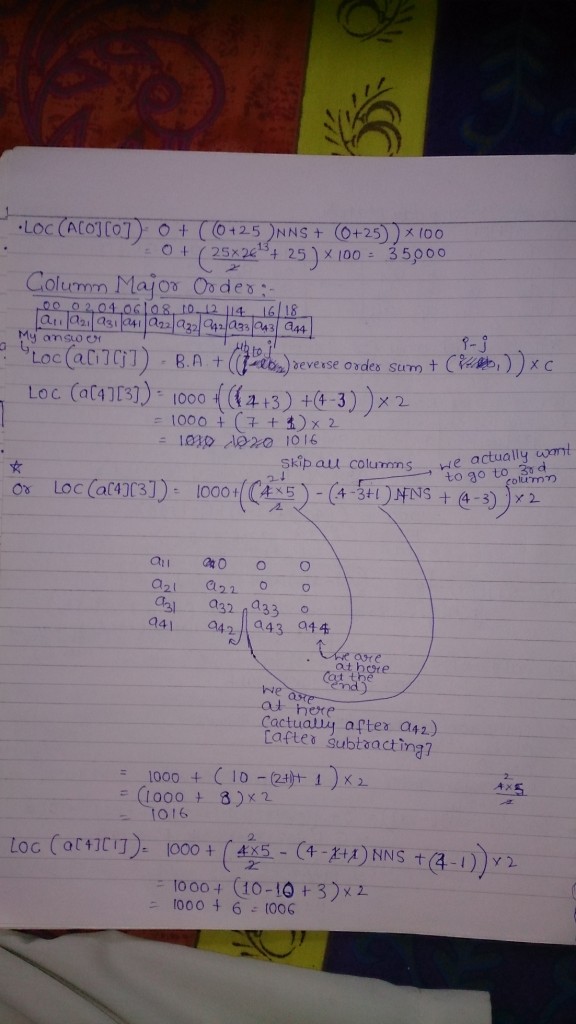 •LOC (A[0][0]) = 0 + ((0+25)NNS + (0+25)) × 100
= 0 + (25×26 13/2 + 25) × 100 = 35,000
Column Major Order:-
00 02 04 06 08 10 12 14 16 18
a11 a21 a31 a41 a22 a32 a42 a33 a43 a44
My answer
LOC (a[i][j]) = B.A + (( ) reverse order sum + (i-j)) × C
LOC (a[4][3]) = 1000 + ((4+3) + (4-3)) × 2
= 1000 + (7 + 1) × 2
= 1016
skip all columns
we actually want to go to 3rd column
Or LOC (a[4][3]) = 1000 + ((4×5/2) - (4-3+1) NNS + (4-3)) × 2
a11 0 0 0
a21 a22 0 0
a31 a32 a33 0
a41 a42 a43 a44
we are
at here
(at the
end)
we are
at here
(actually after a42)
[after subtracting]
= 1000 + (10 - (2+1) + 1) × 2
4×5/2
= (1000 + 8) × 2
= 1016
LOC (a[4][1]) = 1000 + (4×5/2 - (4-1+1) NNS + (4-1)) × 2
= 1000 + (10-10 + 3) × 2
= 1000 + 6 = 1006